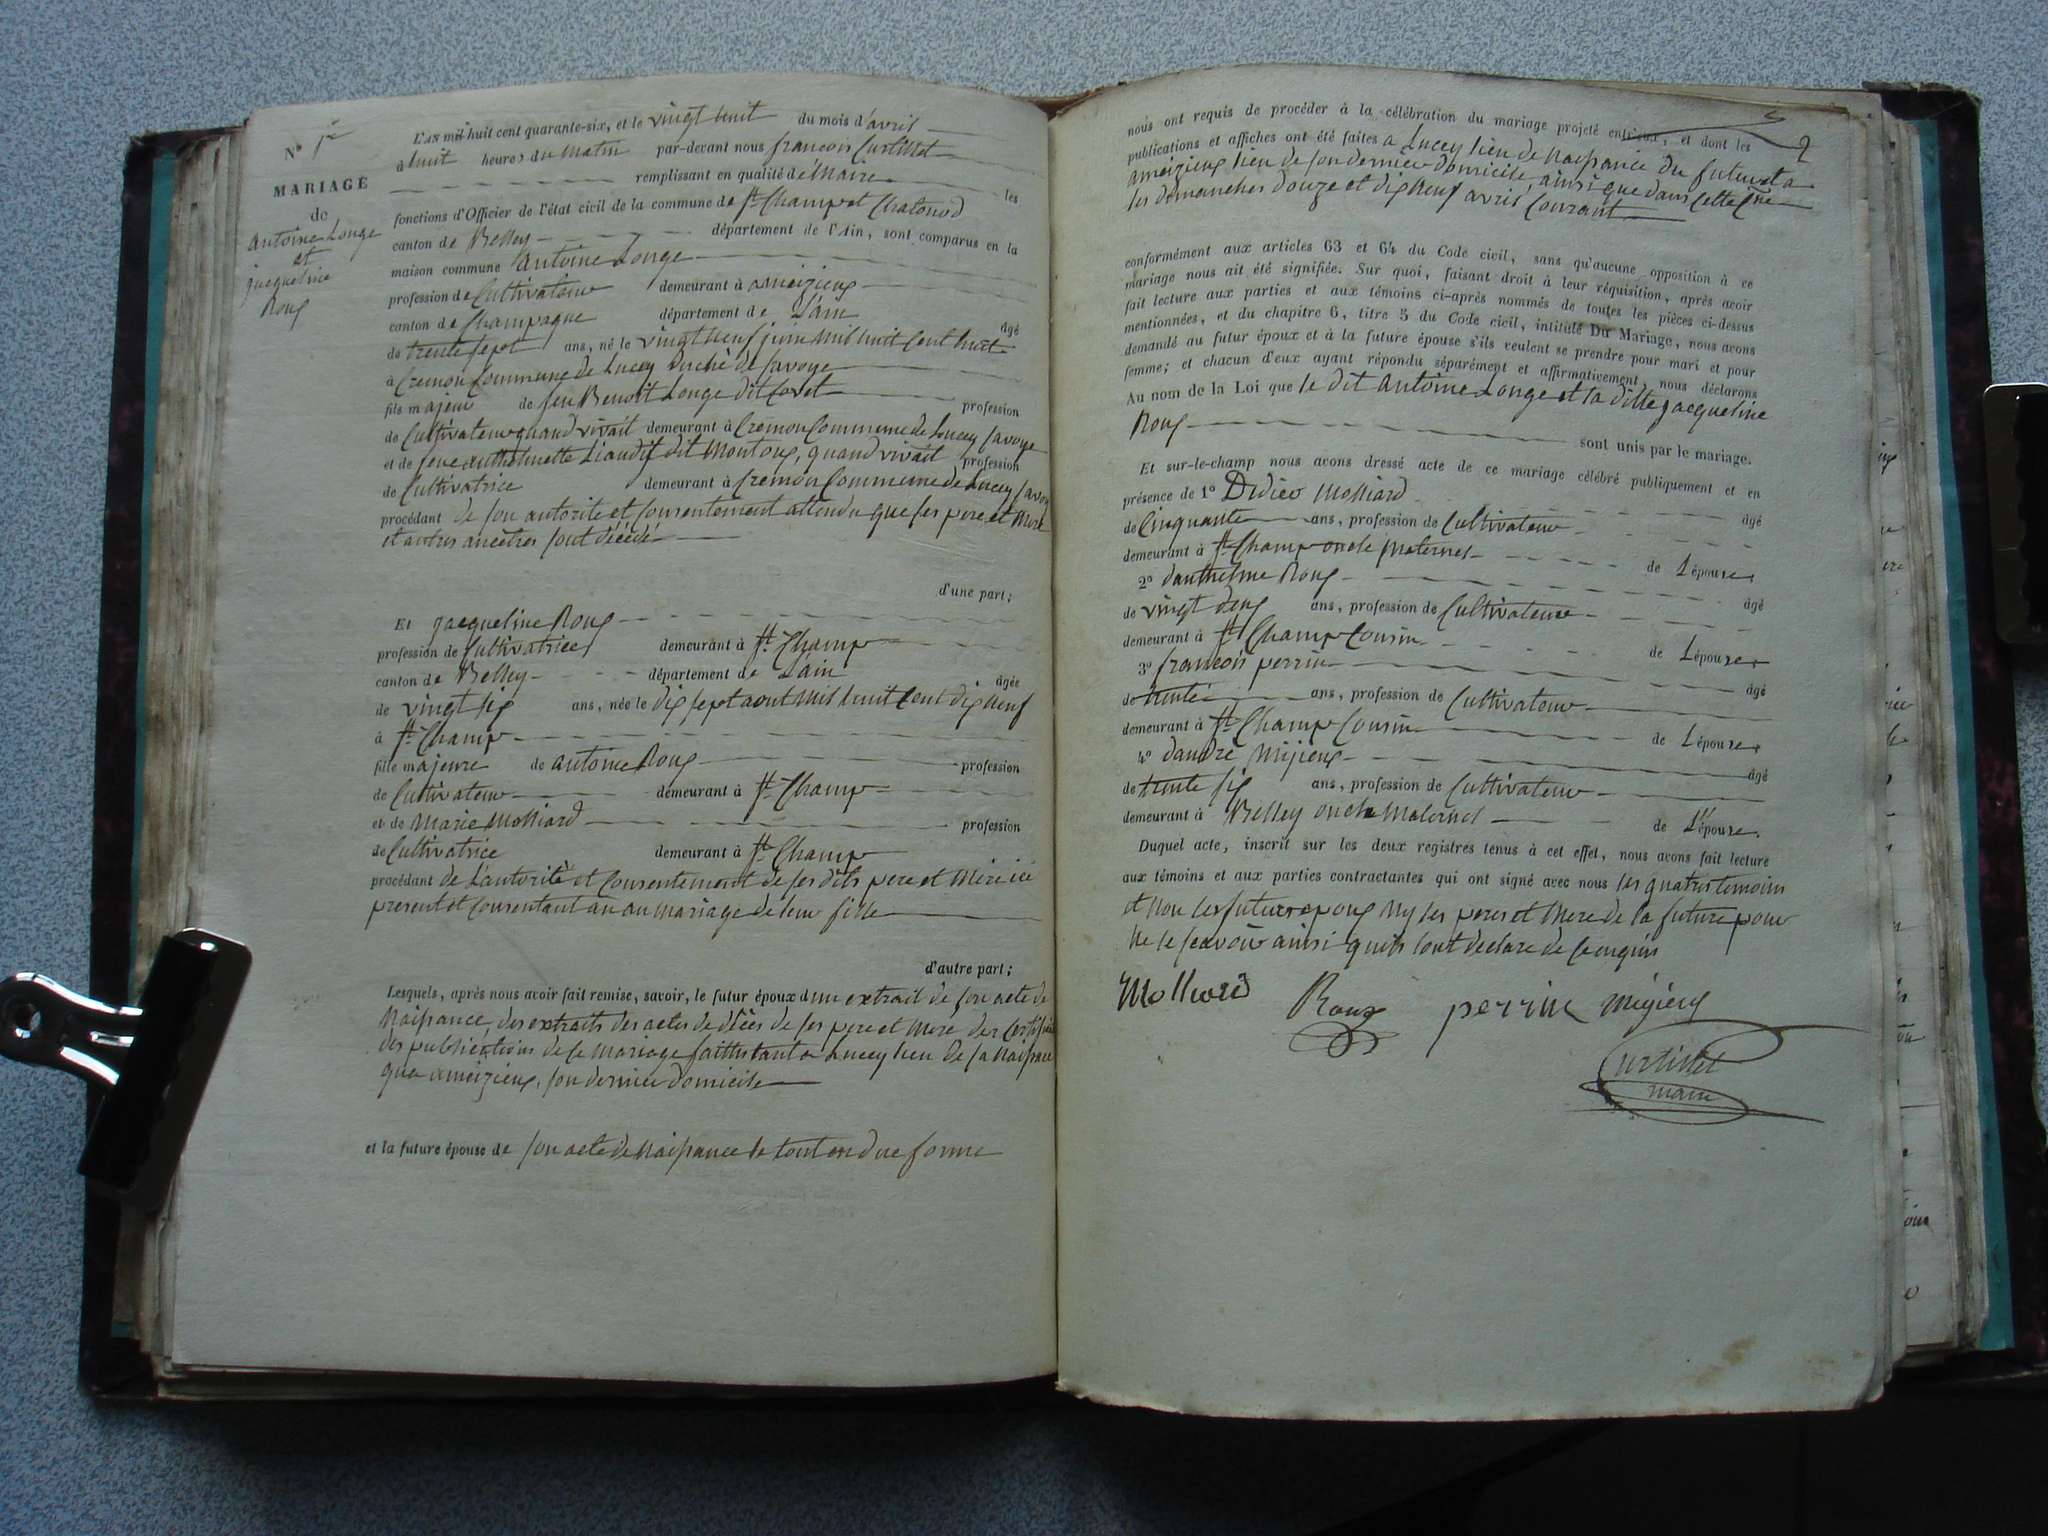 N° 1er
MARIAGE
de
antoine Longe
et
jacqueline
Roux
L'AN mil huit cent quarante-six, et le vingt huit du mois d'avril
à huit heures du matin par-devant nous francois Curtillet
remplissant en qualité de Maire les
fonctions d'Officier de l'état civil de la commune de St Champ et Chatonod
canton de Belley département de l'Ain, sont comparus en la
maison commune antoine Longe
profession de Cultivateur demeurant à ameizieux
canton de Champagne département de L'ain âgé
de trente sept ans, né le vingt neuf juin mil huit Cent huit
à Cremon Commune de Lucey Duché de Savoye
fils majeur de feu Benoit Longe dit Covet profession
de Cultivateur quand vivait demeurant à Cremon Commune de Lucey Savoye
et de feue anthelmette Liaudif dit Montoux, quand vivait profession
de Cultivatrice demeurant à Cremon Commune de Lucey Savoye
procédant de son autorité et Consentement attendu que ses pere et Mere
et autres ancêtres sont décédé
d'une part;
Et jacqueline Roux
profession de Cultivatrice demeurant à St Champ
canton de Belley département de L'ain âgée
de vingt six ans, née le dix sept aout mil huit Cent dix neuf
à St Champ
fille majeure de antoine Roux profession
de Cultivateur demeurant à St Champ
et de Marie Molliard profession
de Cultivatrice demeurant à St Champ
procédant de L'autorité et Consentement de ses dits pere et Mere ici
present et Consentant au mariage de leur fille
d'autre part;
Lesquels, après nous avoir fait remise, savoir, le futur époux d'un extrait de son acte de
Naissance, des extraits des actes de décès de ses pere et Mere des Certificats
des publications de ce mariage faittes tant a Lucey lieu de sa Naissance
que ameizieux, son dernier domicile
et la future épouse de son acte de Naissance le tout en due forme
2
nous ont requis de procéder à la célébration du mariage projeté entr'eux, et dont les
publications et affiches ont été faites a Lucey lieu de Naissance du futur et a
ameizieux lieu de son dernier domicile, ainsi que dans Cette Cne
les dimanches douze et dix neuf avril Courant
conformément aux articles 63 et 64 du Code civil, sans qu'aucune opposition à ce
mariage nous ait été signifiée. Sur quoi, faisant droit à leur réquisition, après avoir
fait lecture aux parties et aux témoins ci-après nommés de toutes les pièces ci-dessus
mentionnées, et du chapitre 6, titre 5 du Code civil, intitulé Du Mariage, nous avons
demandé au futur époux et à la future épouse s'ils veulent se prendre pour mari et pour
femme; et chacun d'eux ayant répondu séparément et affirmativement, nous déclarons
Au nom de la Loi que le dit antoine Longe et la ditte jacqueline
Roux sont unis par le mariage.
Et sur-le-champ nous avons dressé acte de ce mariage célébré publiquement et en
présence de 1° Didier Molliard âgé
de Cinquante ans, profession de Cultivateur
demeurant à St Champ oncle maternel de L'épouse
2° d'anthelme Roux âgé
de vingt deux ans, profession de Cultivateur
demeurant à St Champ Cousin de L'épouse
3° francois perrin âgé
de trente ans, profession de Cultivateur
demeurant à St Champ Cousin de L'épouse
4° d'andré Mijieux âgé
de trente six ans, profession de Cultivateur
demeurant à Belley oncle Maternel de L'épouse.
Duquel acte, inscrit sur les deux registres tenus à cet effet, nous avons fait lecture
aux témoins et aux parties contractantes qui ont signé avec nous les quatres temoins
et Non les futurs epoux Ny les peres et Mere de la future pour
Ne le scavoir ainsi quils l'ont declare de ce enquis
Molliard Roux perrin Migieux
Curtillet
maire